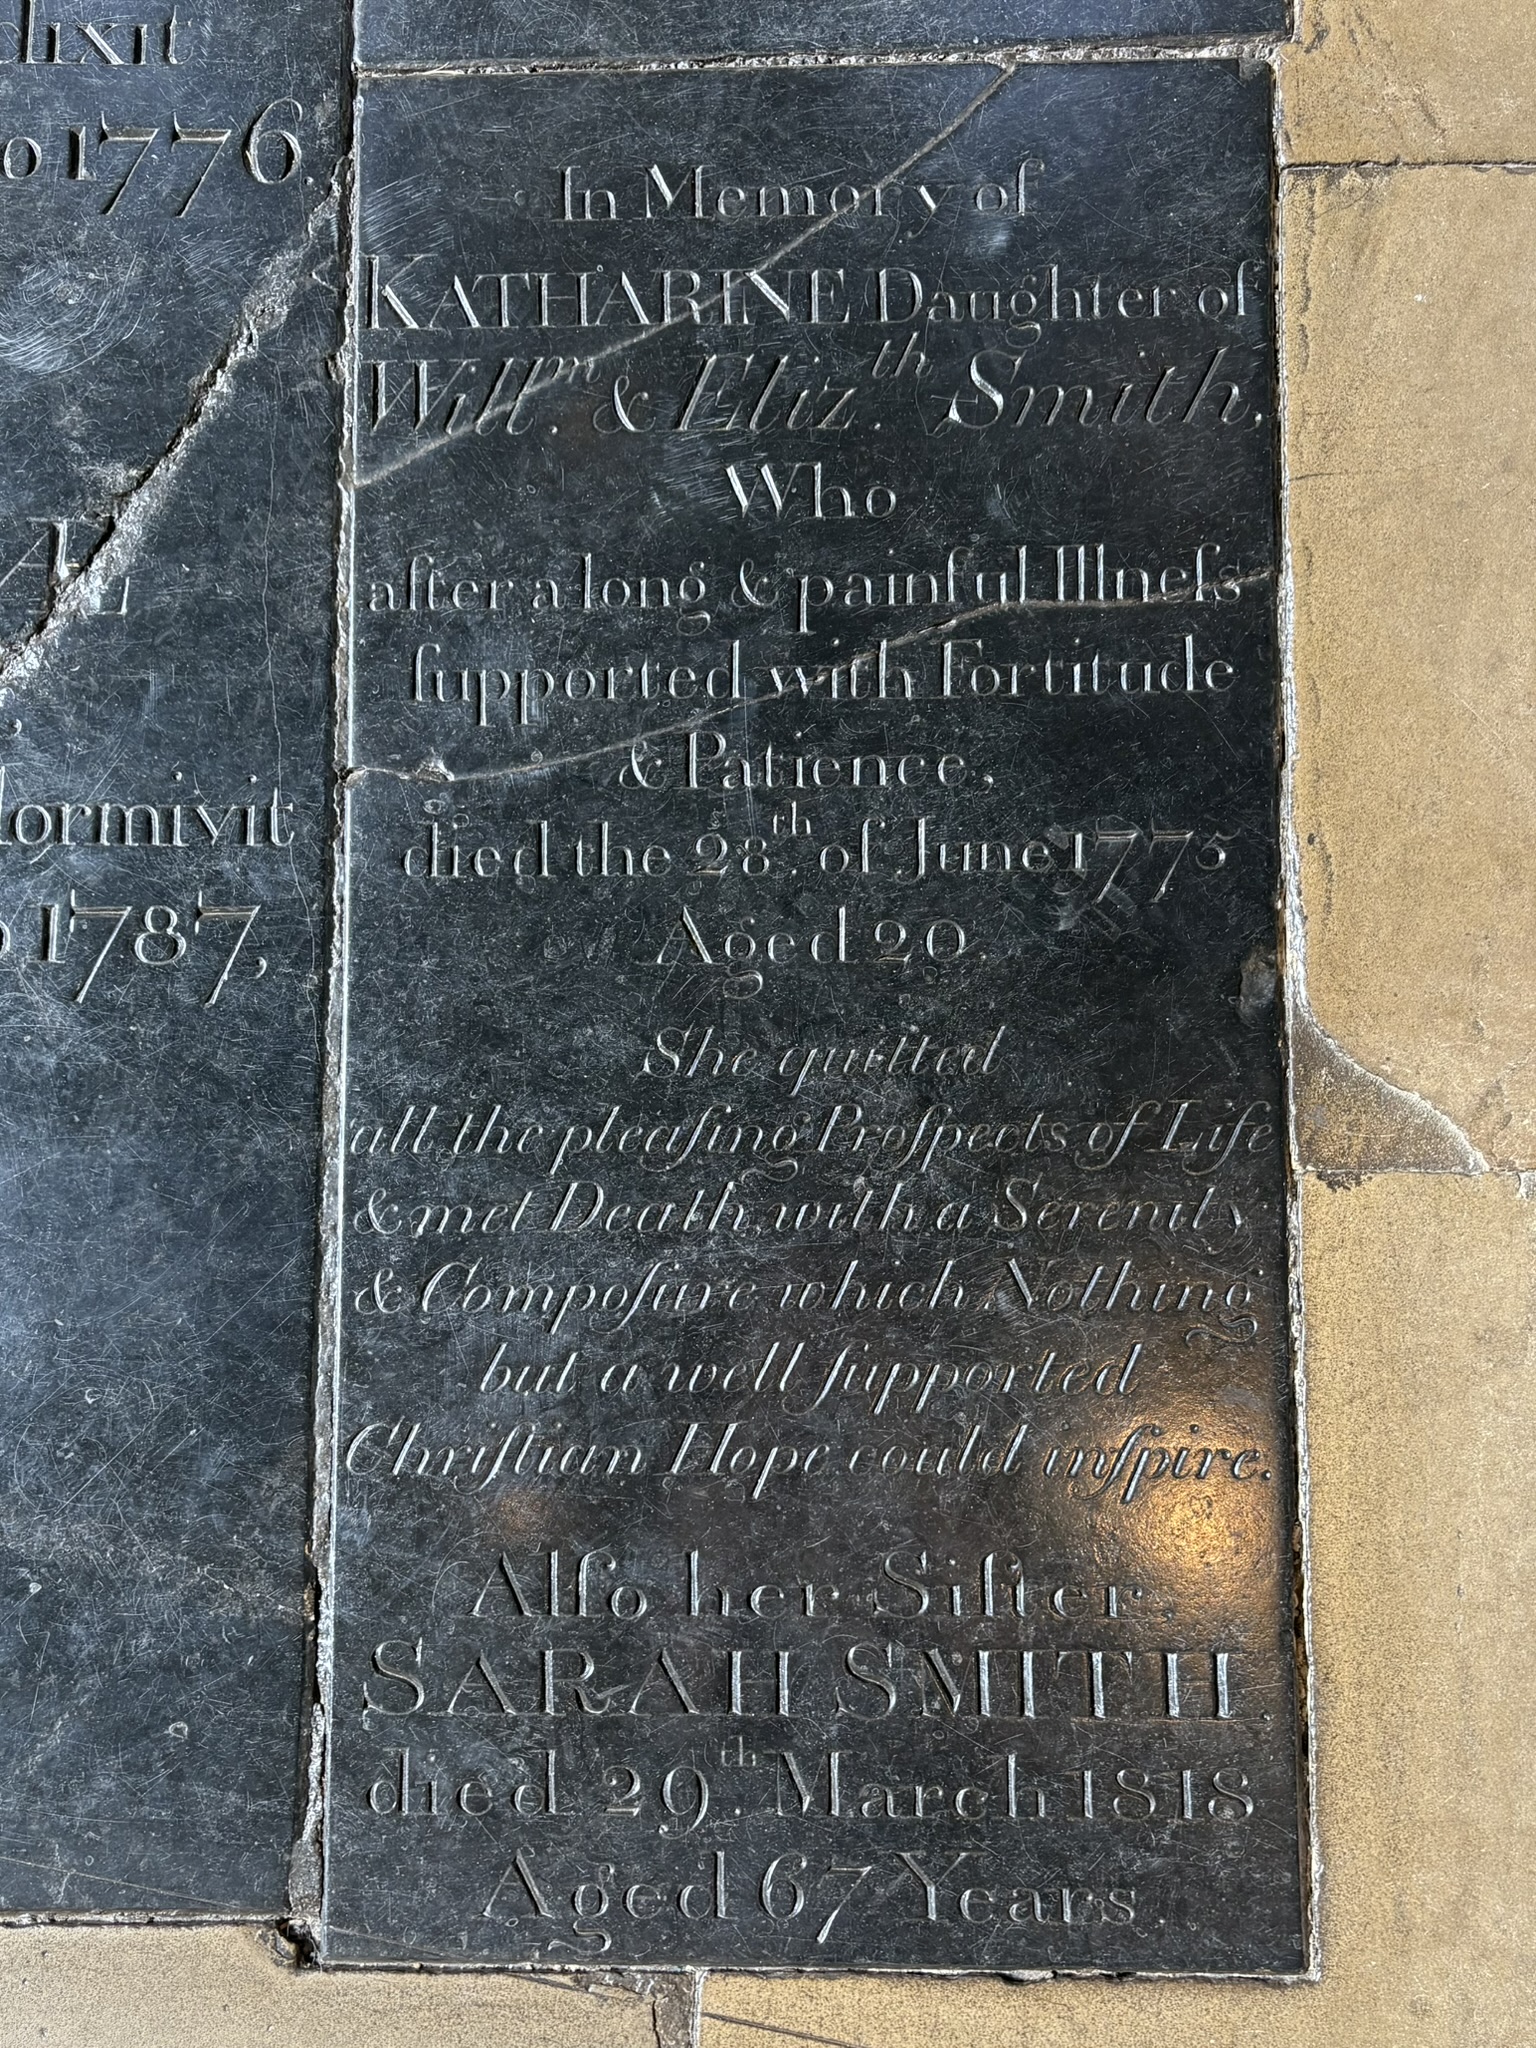 dixit
o 1776.
Æ
dormivit
o 1787,
In Memory of
KATHARINE Daughter of
Will.ᵐ & Eliz.ᵗʰ Smith,
Who
after a long & painful Illneſs
ſupported with Fortitude
& Patience,
died the 28.ᵗʰ of June 1775
Aged 20.
She quitted
all the pleaſing Proſpects of Life
& met Death, with a Serenity
& Compoſure which Nothing
but a well ſupported
Chriſtian Hope could inſpire.
Alſo her Siſter,
SARAH SMITH.
died 29.ᵗʰ March 1818
Aged 67 Years.